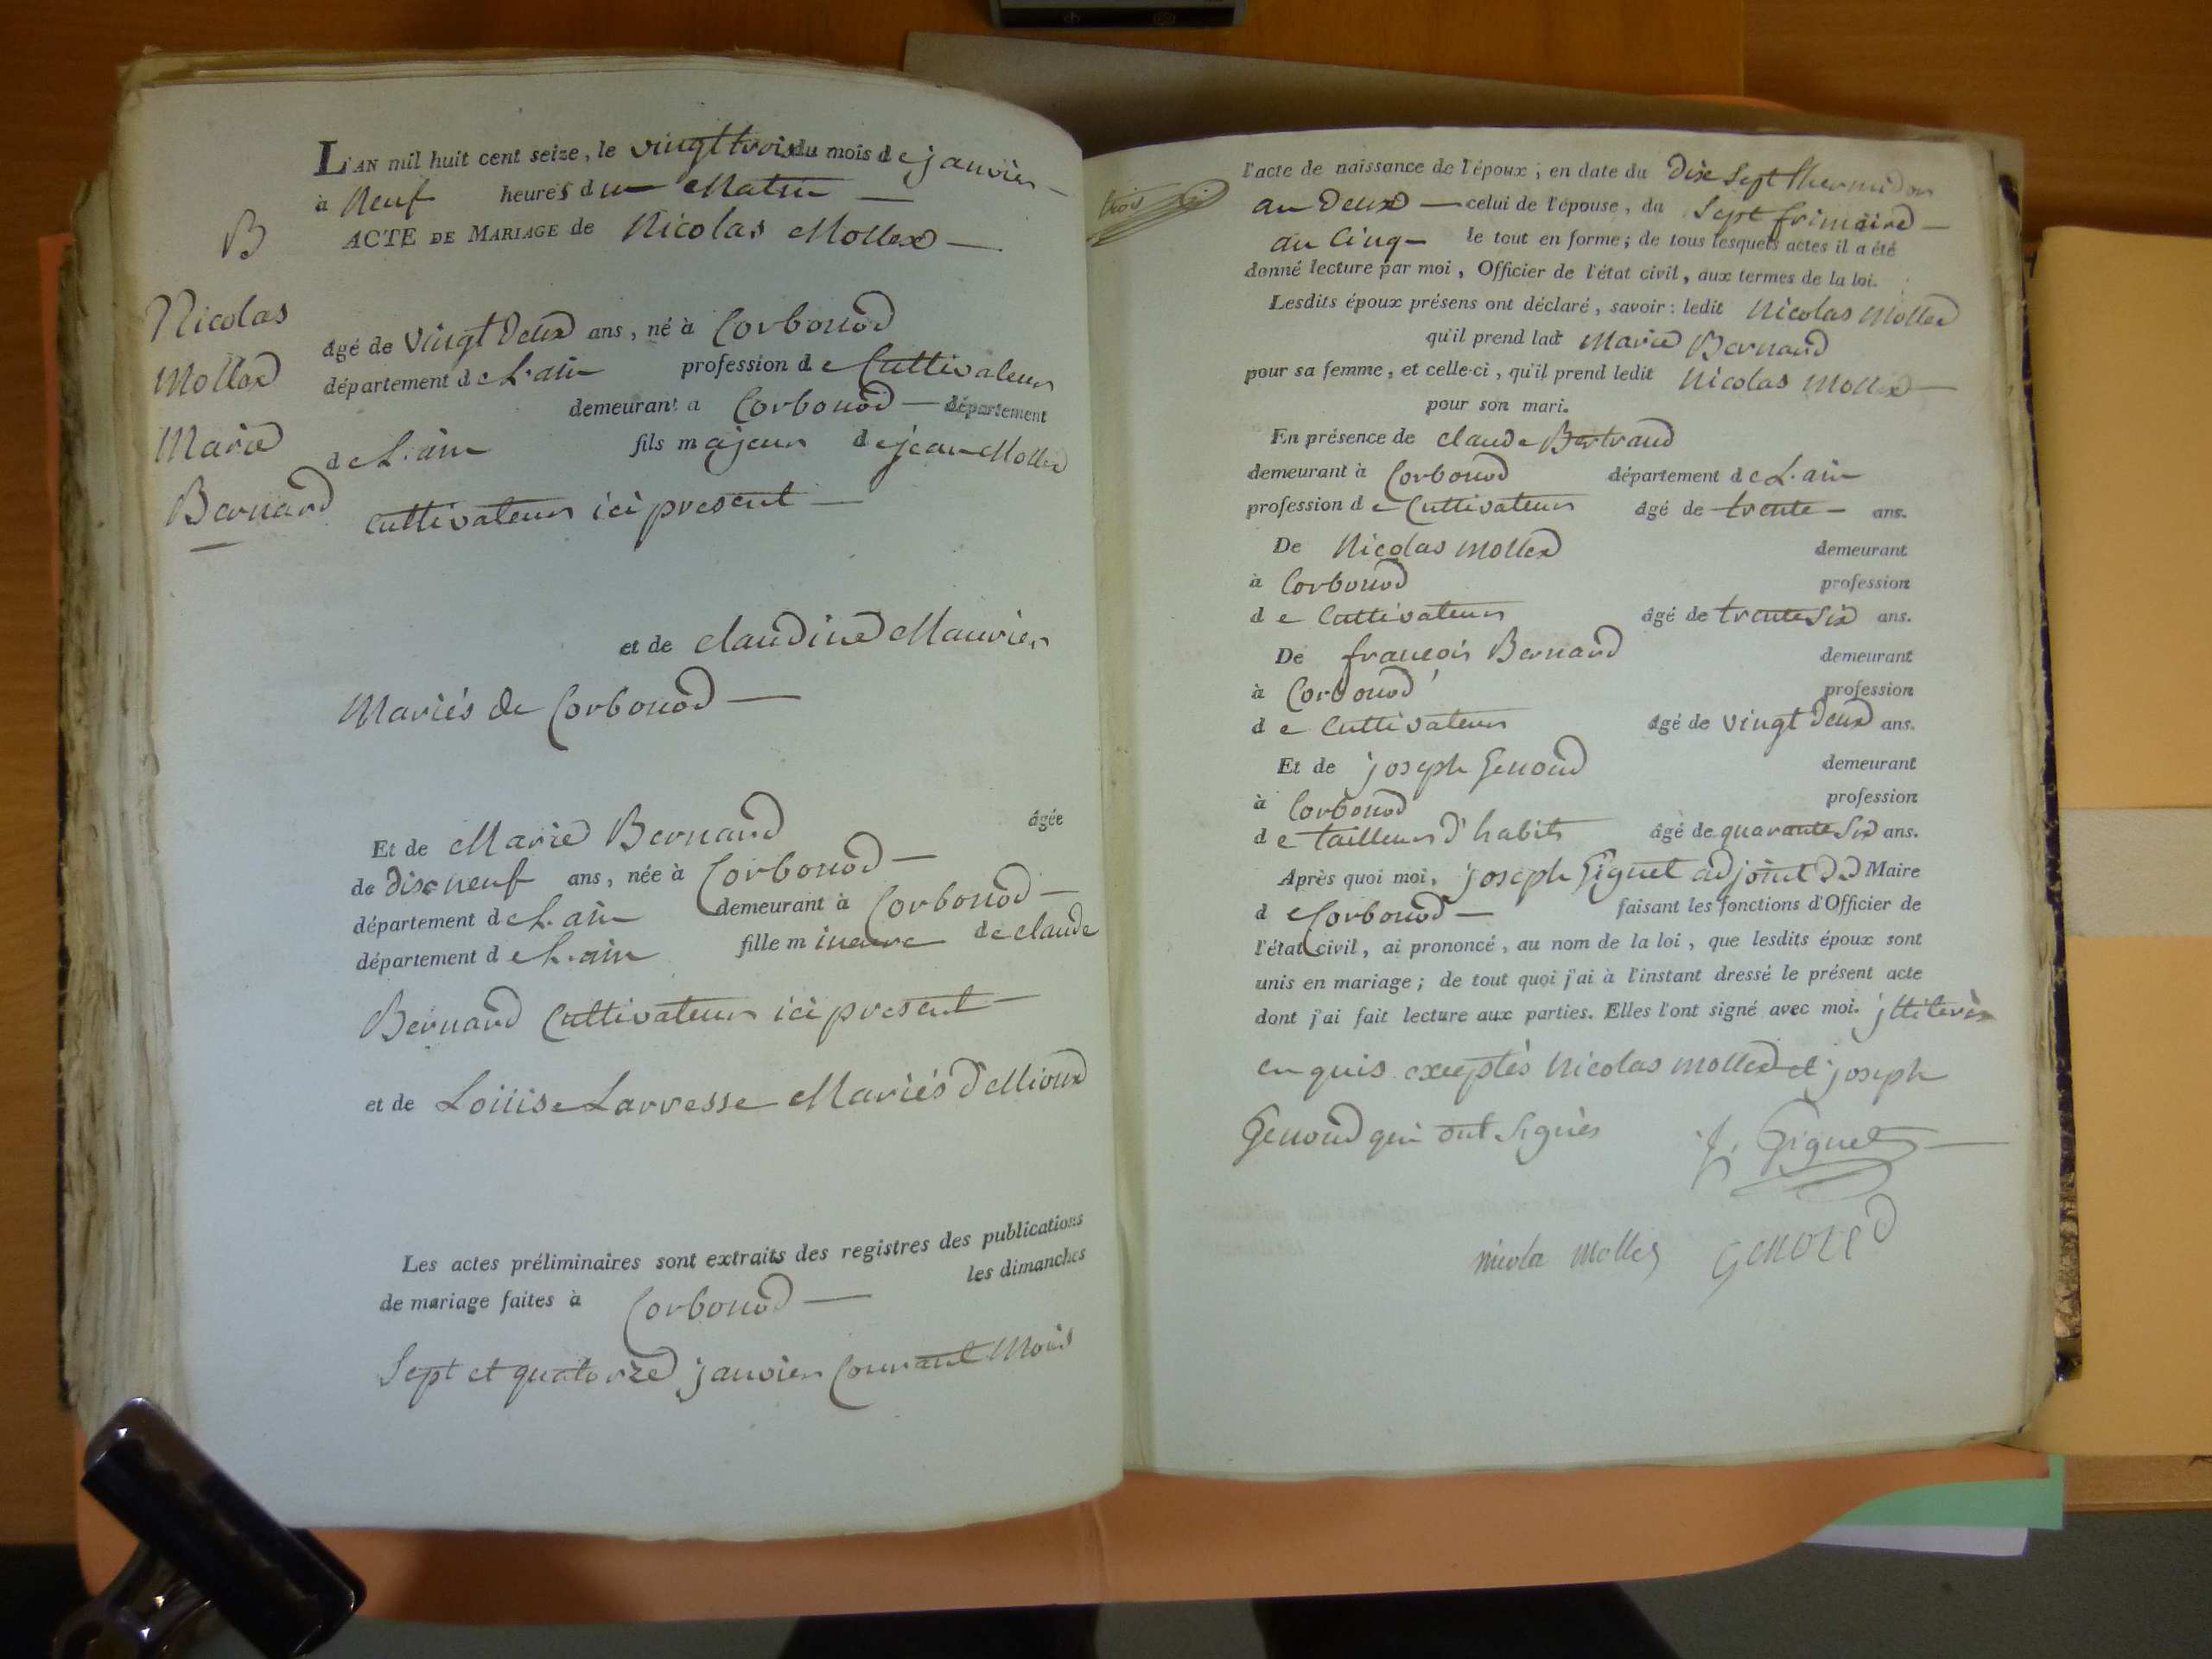 L'AN mil huit cent seize, le vingt trois du mois de janvier
à neuf heures du Matin
B
ACTE DE MARIAGE de Nicolas Mollex
Nicolas
Mollex
Marie
Bernard
âgé de vingt deux ans, né à Corbonod
département de L'ain profession de Cultivateur
demeurant a Corbonod département
de L'ain fils majeur de jean Mollex
cultivateur ici present
et de claudine Maurier
Mariés de Corbonod
Et de Marie Bernard âgée
de dix neuf ans, née à Corbonod
département de L'ain demeurant à Corbonod
département de L'ain fille mineure de claude
Bernard Cultivateur ici present
et de Louise Larresse Mariés
Les actes préliminaires sont extraits des registres des publications
de mariage faites à Corbonod les dimanches
Sept et quatorze janvier Courant Mois
trois
l'acte de naissance de l'époux ; en date du dix Sept thermidor
an deux celui de l'épouse, du Sept frimaire
an Cinq le tout en forme; de tous lesquels actes il a été
donné lecture par moi, Officier de l'état civil, aux termes de la loi.
Lesdits époux présens ont déclaré, savoir : ledit Nicolas Mollex
qu'il prend ladt Marie Bernard
pour sa femme, et celle-ci, qu'il prend ledit Nicolas Mollex
pour son mari.
En présence de claude Bertrand
demeurant à Corbonod département de L'ain
profession de Cultivateur âgé de trente ans.
De Nicolas Mollex demeurant
à Corbonod profession
de Cultivateur âgé de trente Six ans.
De françois Bernard demeurant
à Corbonod profession
de Cultivateur âgé de vingt deux ans.
Et de joseph Genoud demeurant
à Corbonod profession
de tailleur d'habits âgé de quarante Six ans.
Après quoi moi, joseph Giguet adjoint du Maire
de Corbonod faisant les fonctions d'Officier de
l'état civil, ai prononcé, au nom de la loi, que lesdits époux sont
unis en mariage ; de tout quoi j'ai à l'instant dressé le présent acte
dont j'ai fait lecture aux parties. Elles l'ont signé avec moi. jllitérés
enquis exceptés Nicolas Mollex et joseph
Genoud qui ont Signés J. Giguet
nicola Mollex Genoud